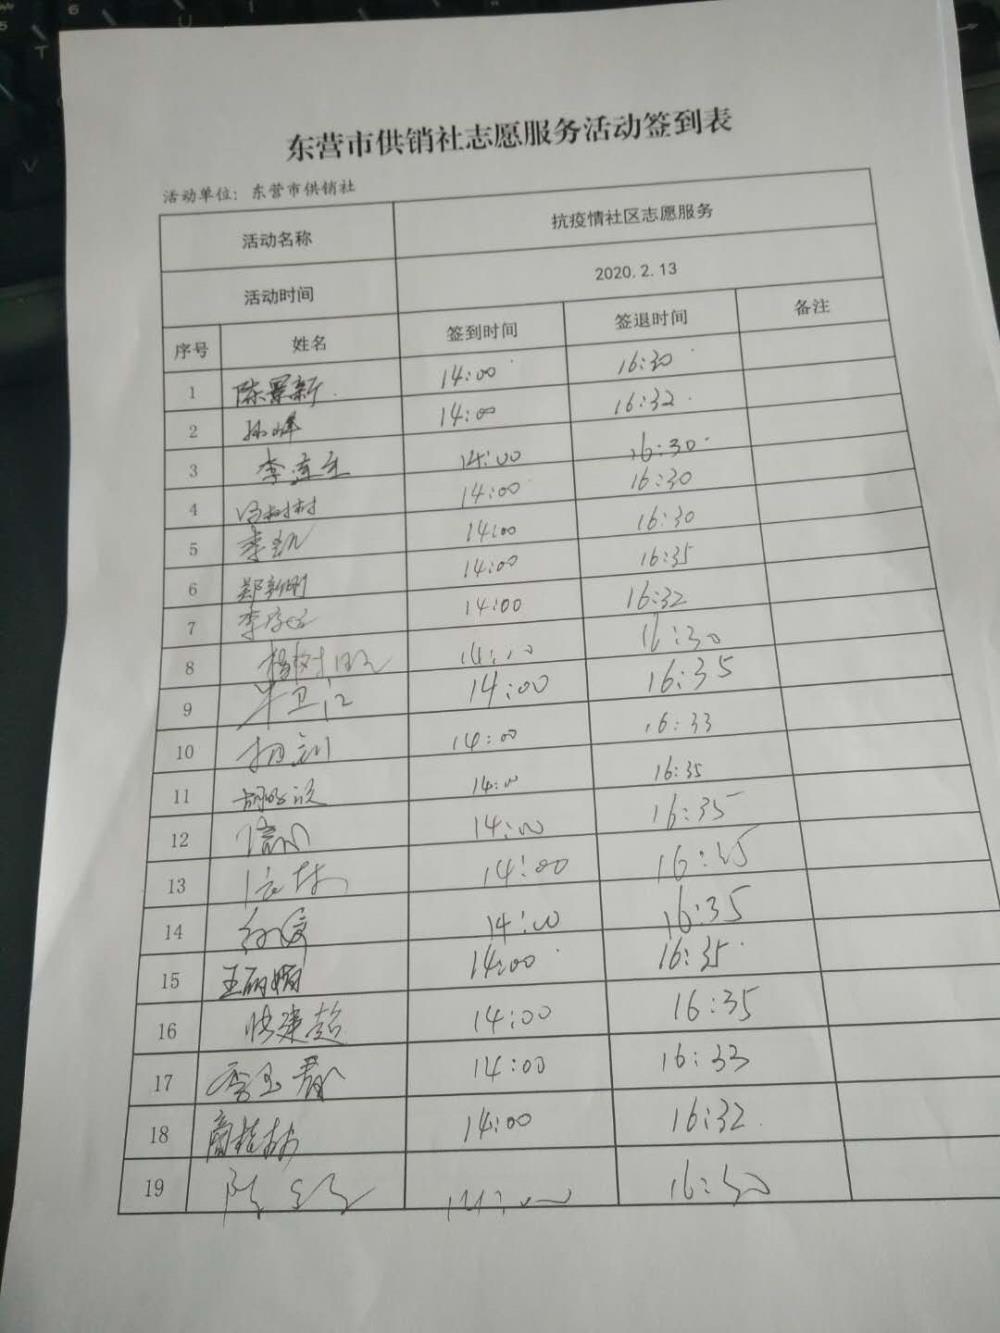 东营市供销社志愿服务活动签到表
活动单位：东营市供销社
活动名称 抗疫情社区志愿服务
活动时间 2020.2.13
序号 姓名 签到时间 签退时间 备注
1 14:00 16:30
2 孙峰 14:00 16:32
3 14:00 16:30
4 冯树村 14:00 16:30
5 李凯 14:00 16:30
6 郑新刚 14:00 16:35
7 14:00 16:32
8 16:30
9 14:00 16:35
10 14:00 16:33
11 14:00 16:35
12 14:00 16:35
13 14:00 16:35
14 14:00 16:35
15 王丽娟 14:00 16:35
16 14:00 16:35
17 14:00 16:33
18 商桂林 14:00 16:32
19 16:30